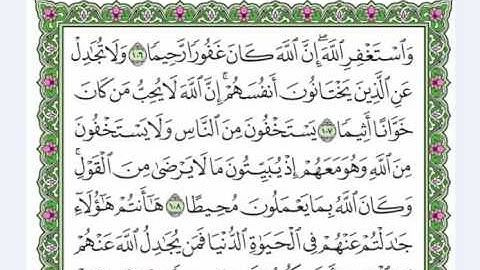 وَٱسْتَغْفِرِ ٱللَّهَ ۖ إِنَّ ٱللَّهَ كَانَ غَفُورًا رَّحِيمًا ١٠٦ وَلَا تُجَٰدِلْ
عَنِ ٱلَّذِينَ يَخْتَانُونَ أَنفُسَهُمْ ۚ إِنَّ ٱللَّهَ لَا يُحِبُّ مَن كَانَ
خَوَّانًا أَثِيمًا ١٠٧ يَسْتَخْفُونَ مِنَ ٱلنَّاسِ وَلَا يَسْتَخْفُونَ
مِنَ ٱللَّهِ وَهُوَ مَعَهُمْ إِذْ يُبَيِّتُونَ مَا لَا يَرْضَىٰ مِنَ ٱلْقَوْلِ ۚ
وَكَانَ ٱللَّهُ بِمَا يَعْمَلُونَ مُحِيطًا ١٠٨ هَٰٓأَنتُمْ هَٰٓؤُلَآءِ
جَٰدَلْتُمْ عَنْهُمْ فِى ٱلْحَيَوٰةِ ٱلدُّنْيَا فَمَن يُجَٰدِلُ ٱللَّهَ عَنْهُمْ